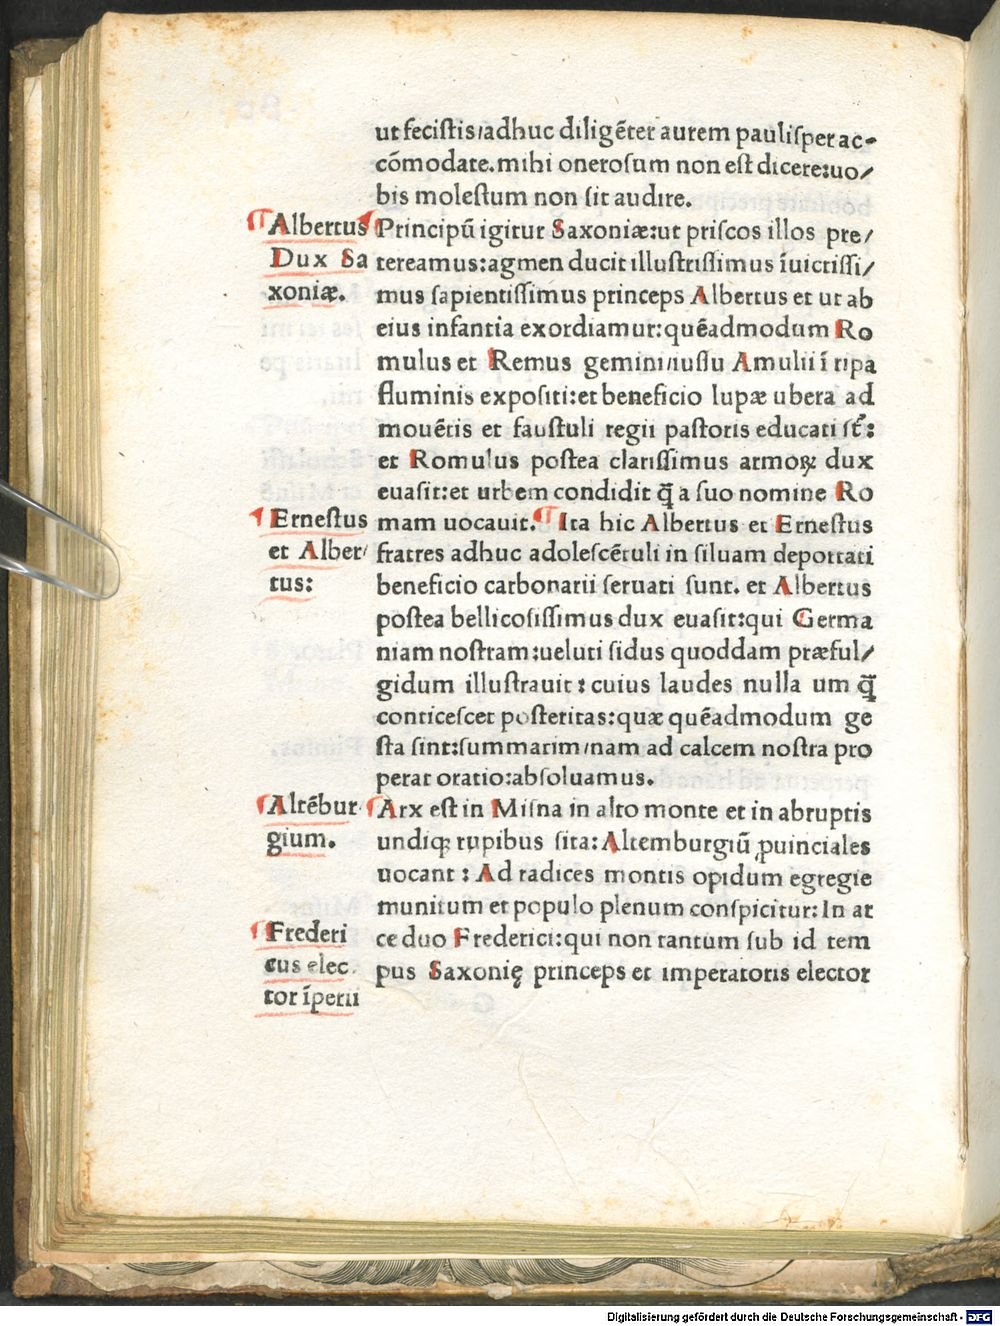 ut feciſtis/adhuc diligēter aurem pauliſper ac-
cōmodate.mihi oneroſum non eſt dicere:uo/
bis moleſtum non ſit audire.
¶Albertus
Dux Sa
xoniæ.
¶Principū igitur Saxoniæ:ut priſcos illos pre/
tereamus:agmen ducit illuſtriſſimus īuictiſſi/
mus ſapientiſſimus princeps Albertus et ut ab
eius infantia exordiamur:quēadmodum Ro
mulus et Remus gemini/iuſſu Amulii ī ripa
fluminis expoſiti:et beneficio lupæ ubera ad
mouētis et fauſtuli regii paſtoris educati ſt̄:
et Romulus poſtea clariſſimus armoꝝ dux
euaſit:et urbem condidit q̄ a ſuo nomine Ro
mam uocauit.¶Ita hic Albertus et Erneſtus
fratres adhuc adoleſcētuli in ſiluam deportati
beneficio carbonarii ſeruati ſunt. et Albertus
poſtea bellicoſiſſimus dux euaſit:qui Germa
niam noſtram:ueluti ſidus quoddam præful/
gidum illuſtrauit:cuius laudes nulla um q̄
conticeſcet poſteritas:quæ quēadmodum ge
ſta ſint:ſummatim/nam ad calcem noſtra pro
perat oratio:abſoluamus.
¶Erneſtus
et Alber/
tus:
¶Altēbur
gium.
¶Arx eſt in Miſna in alto monte et in abruptis
undiqꝫ rupibus ſita:Altemburgiū ꝓuinciales
uocant:Ad radices montis opidum egregie
munitum et populo plenum conſpicitur:In ar
ce duo Frederici:qui non tantum ſub id tem
pus Saxonię princeps et imperatoris elector
¶Frederi
cus elec
tor īperii
Digitalisierung gefördert durch die Deutsche Forschungsgemeinschaft - DFG